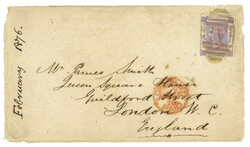 February 1876.
Mr. James Smith
Queen Square House
Guildford Street
London W. C.
England